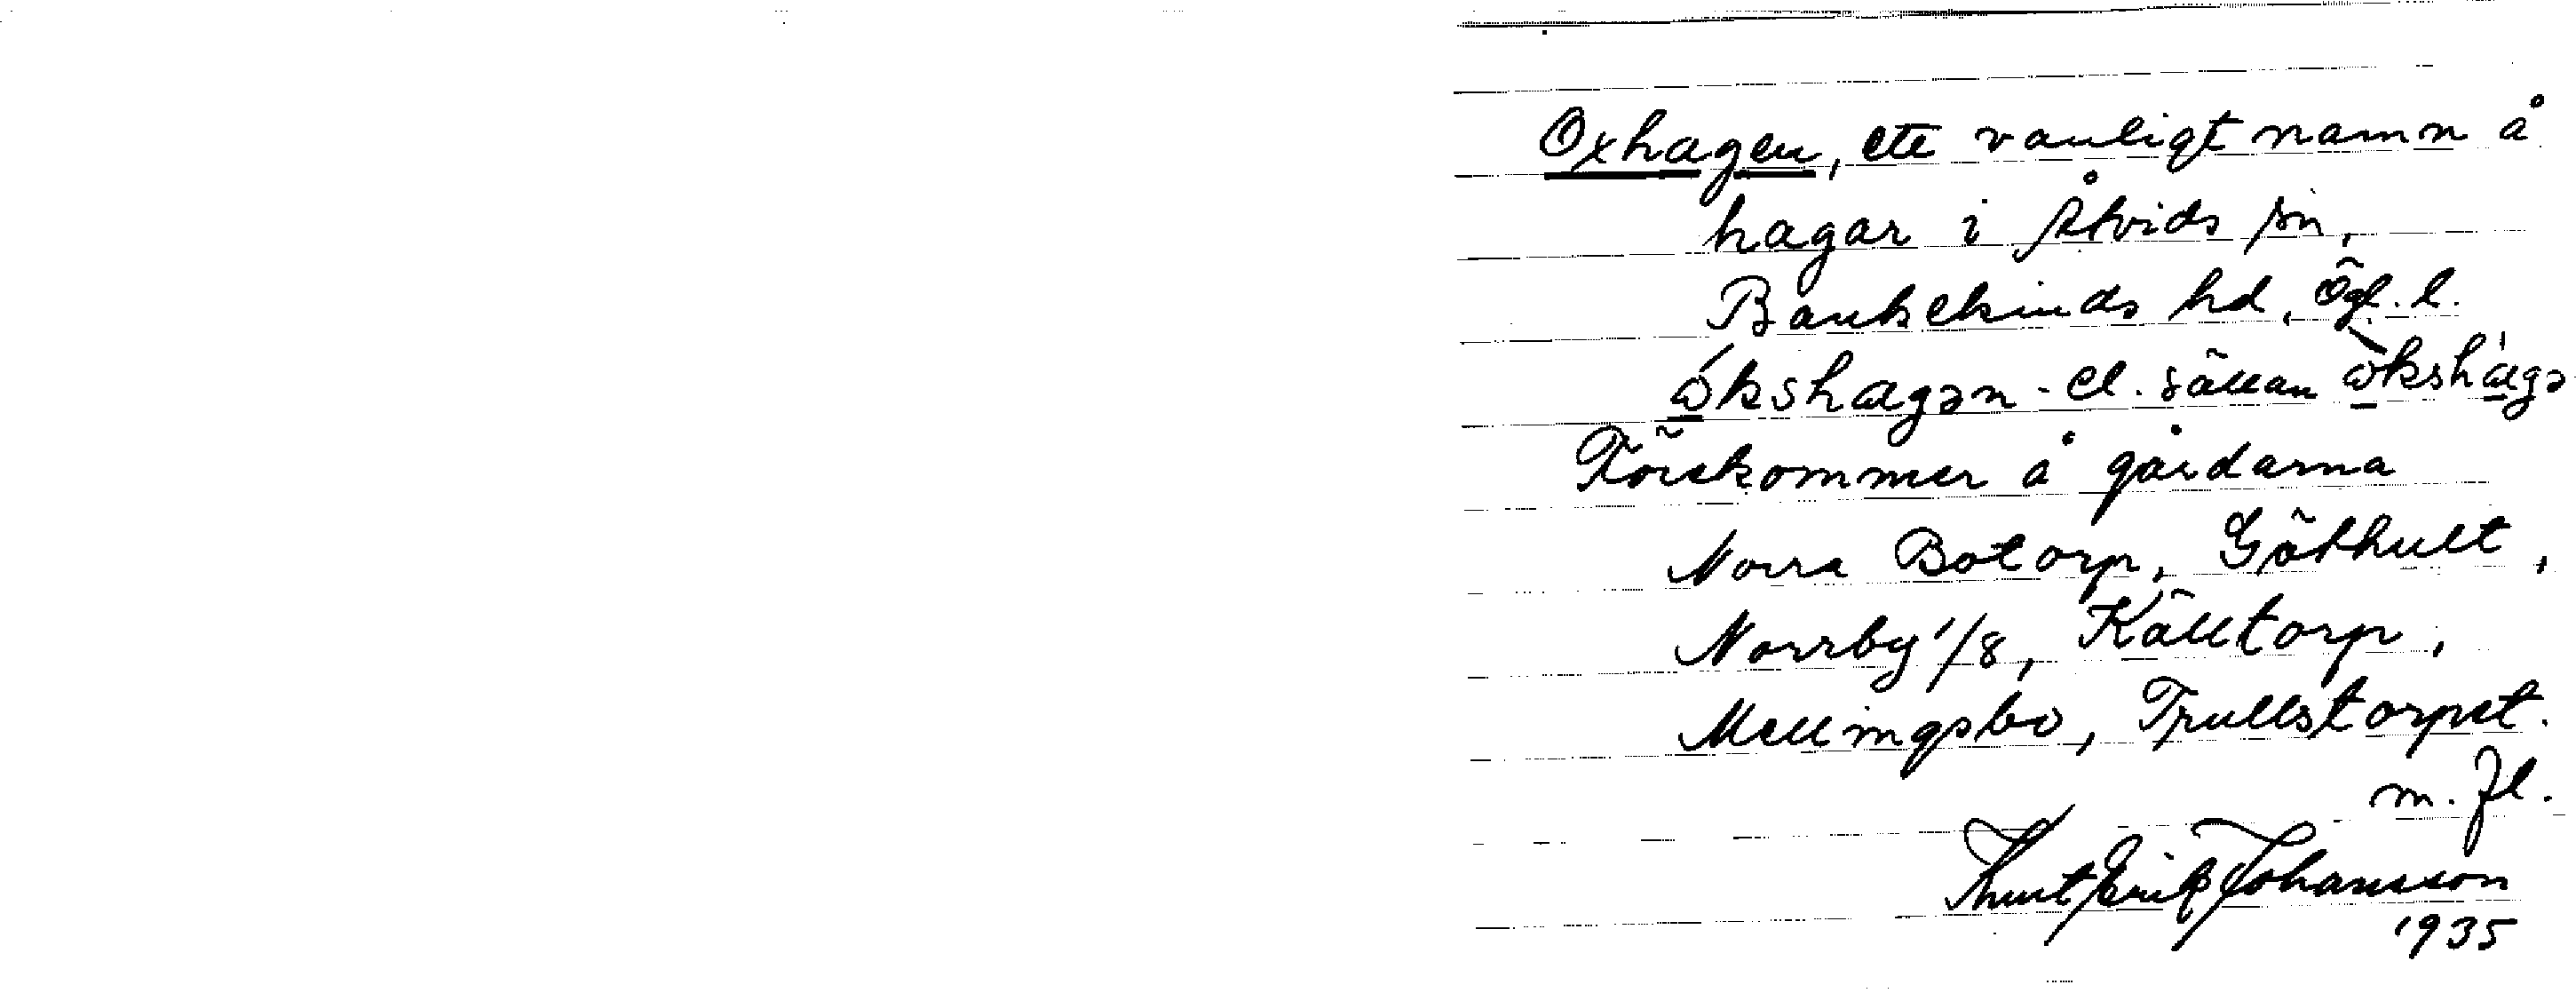 Oxhagen, ett vanligt namn å
hagar i Åtvids sn,
Bankekinds hd, Ögl. l.
ókshagən - el. sällan òkshàgə
Förekommer å gårdarna
Norra Botorp, Göthult,
Norrby 1/8, Källtorp,
Mellingsbo, Trullstorpet.
m. fl.
Knut Erik Johansson
1935